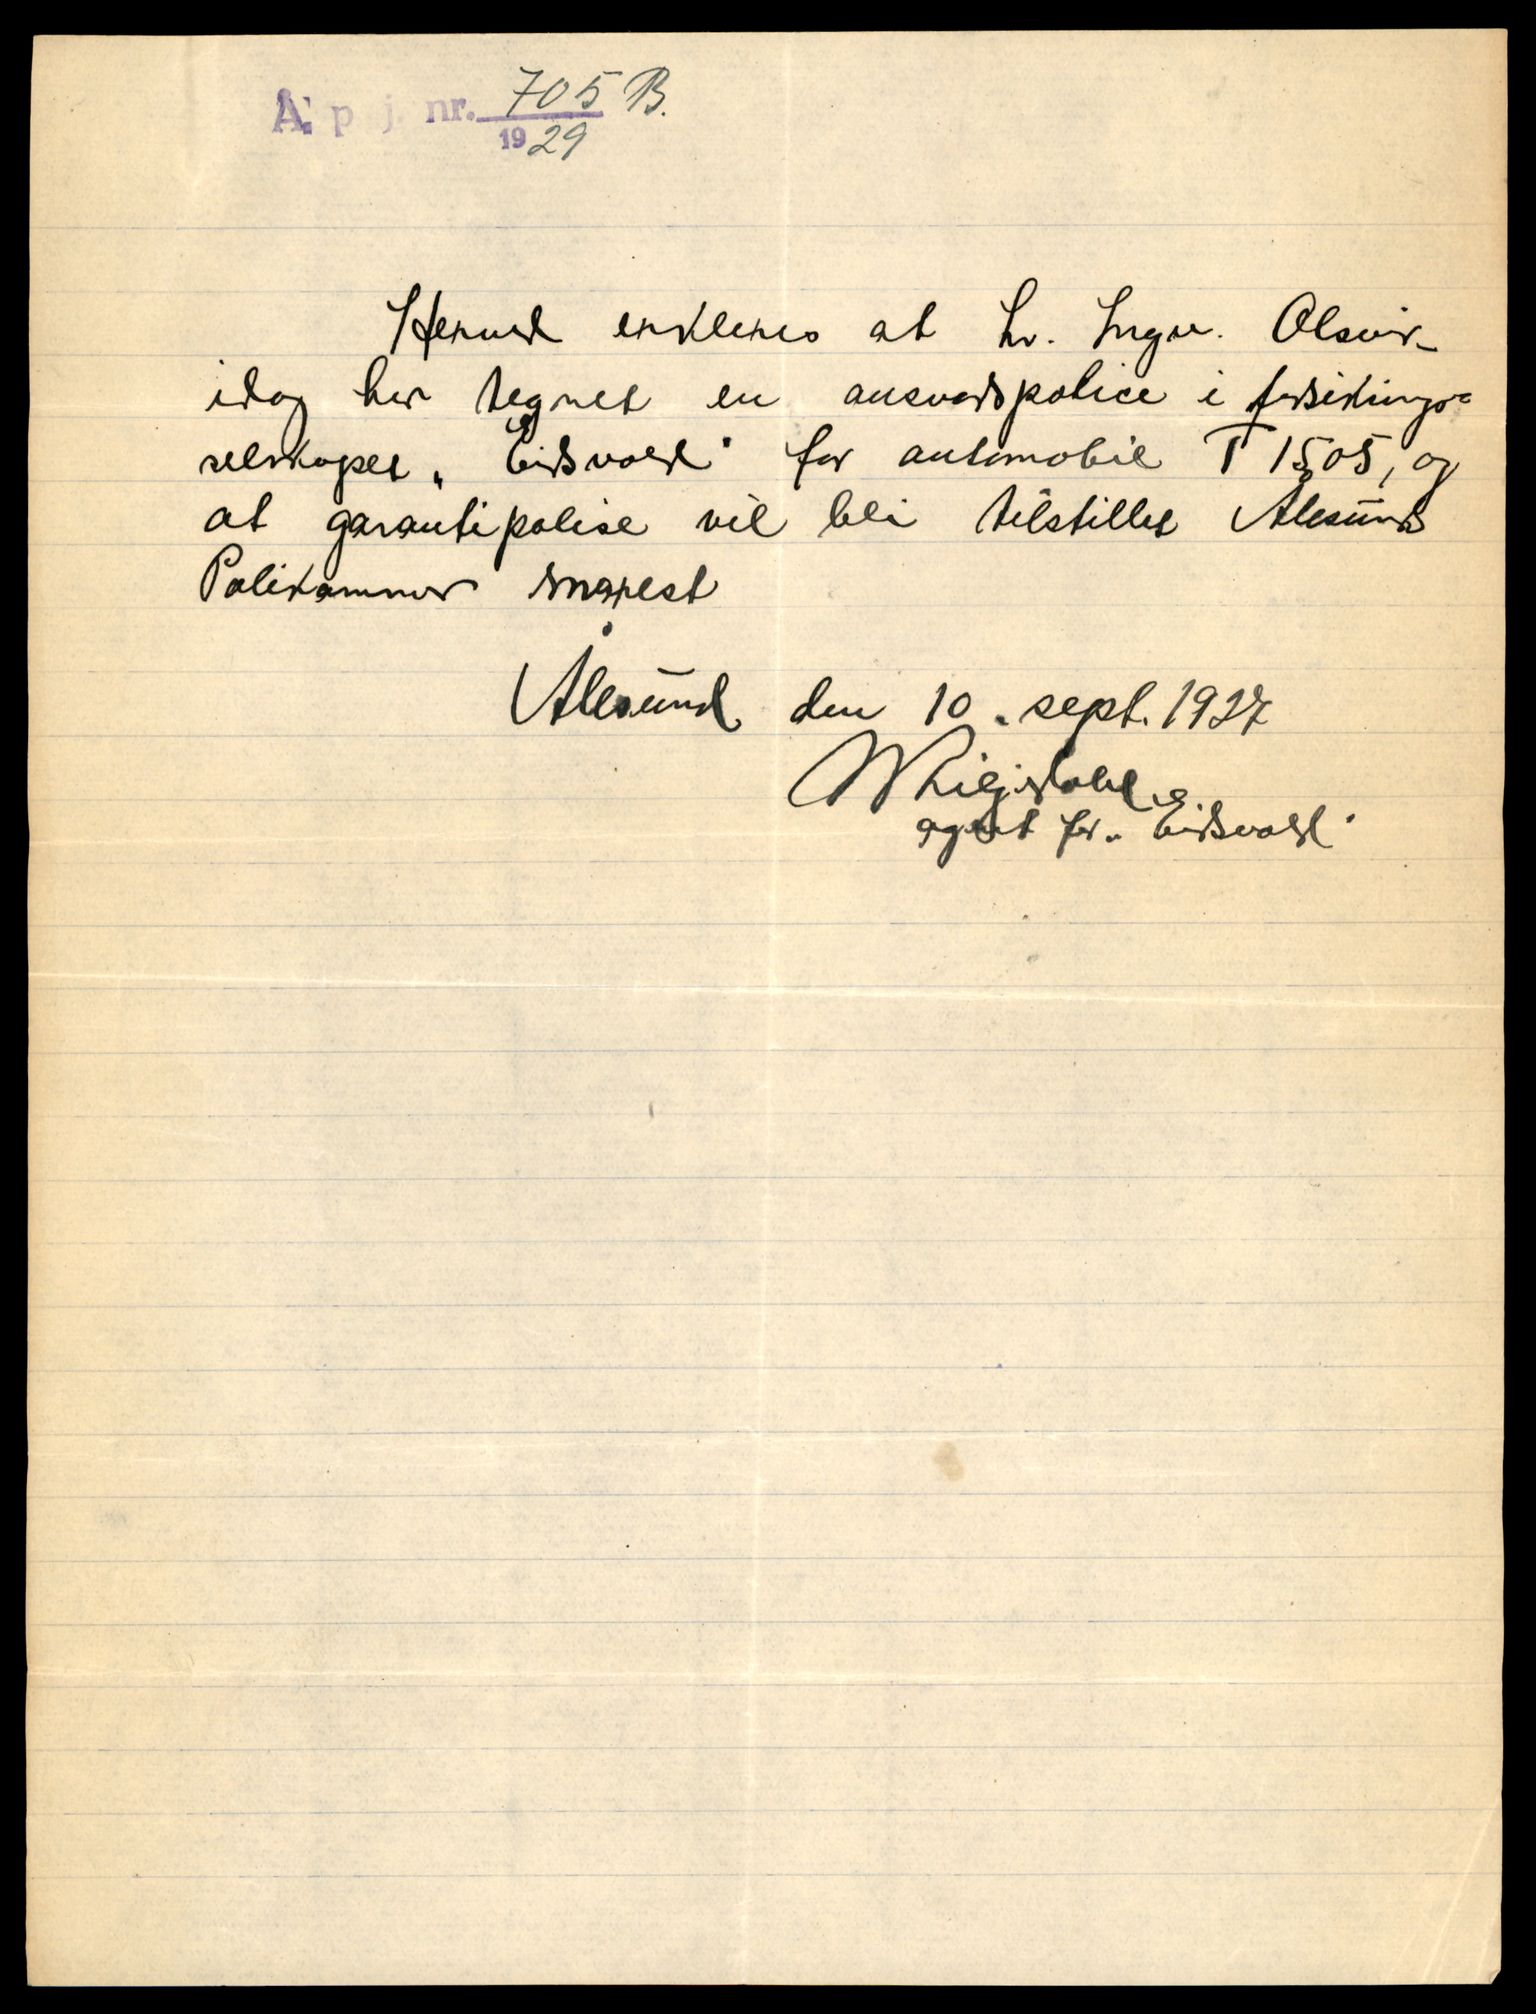 Å. p. j. nr. 705 B.
1929
Herved erklæres at hr. Ingv. Olsvik
idag har tegnet en ansvarspolice i forsikrings-
selskapet „Eidsvold" for automobil T 1505, og
at garantipolise vil bli tilstillet Ålesund
Politikammer snarest
Ålesund den 10. sept. 1927
agent for „Eidsvold"